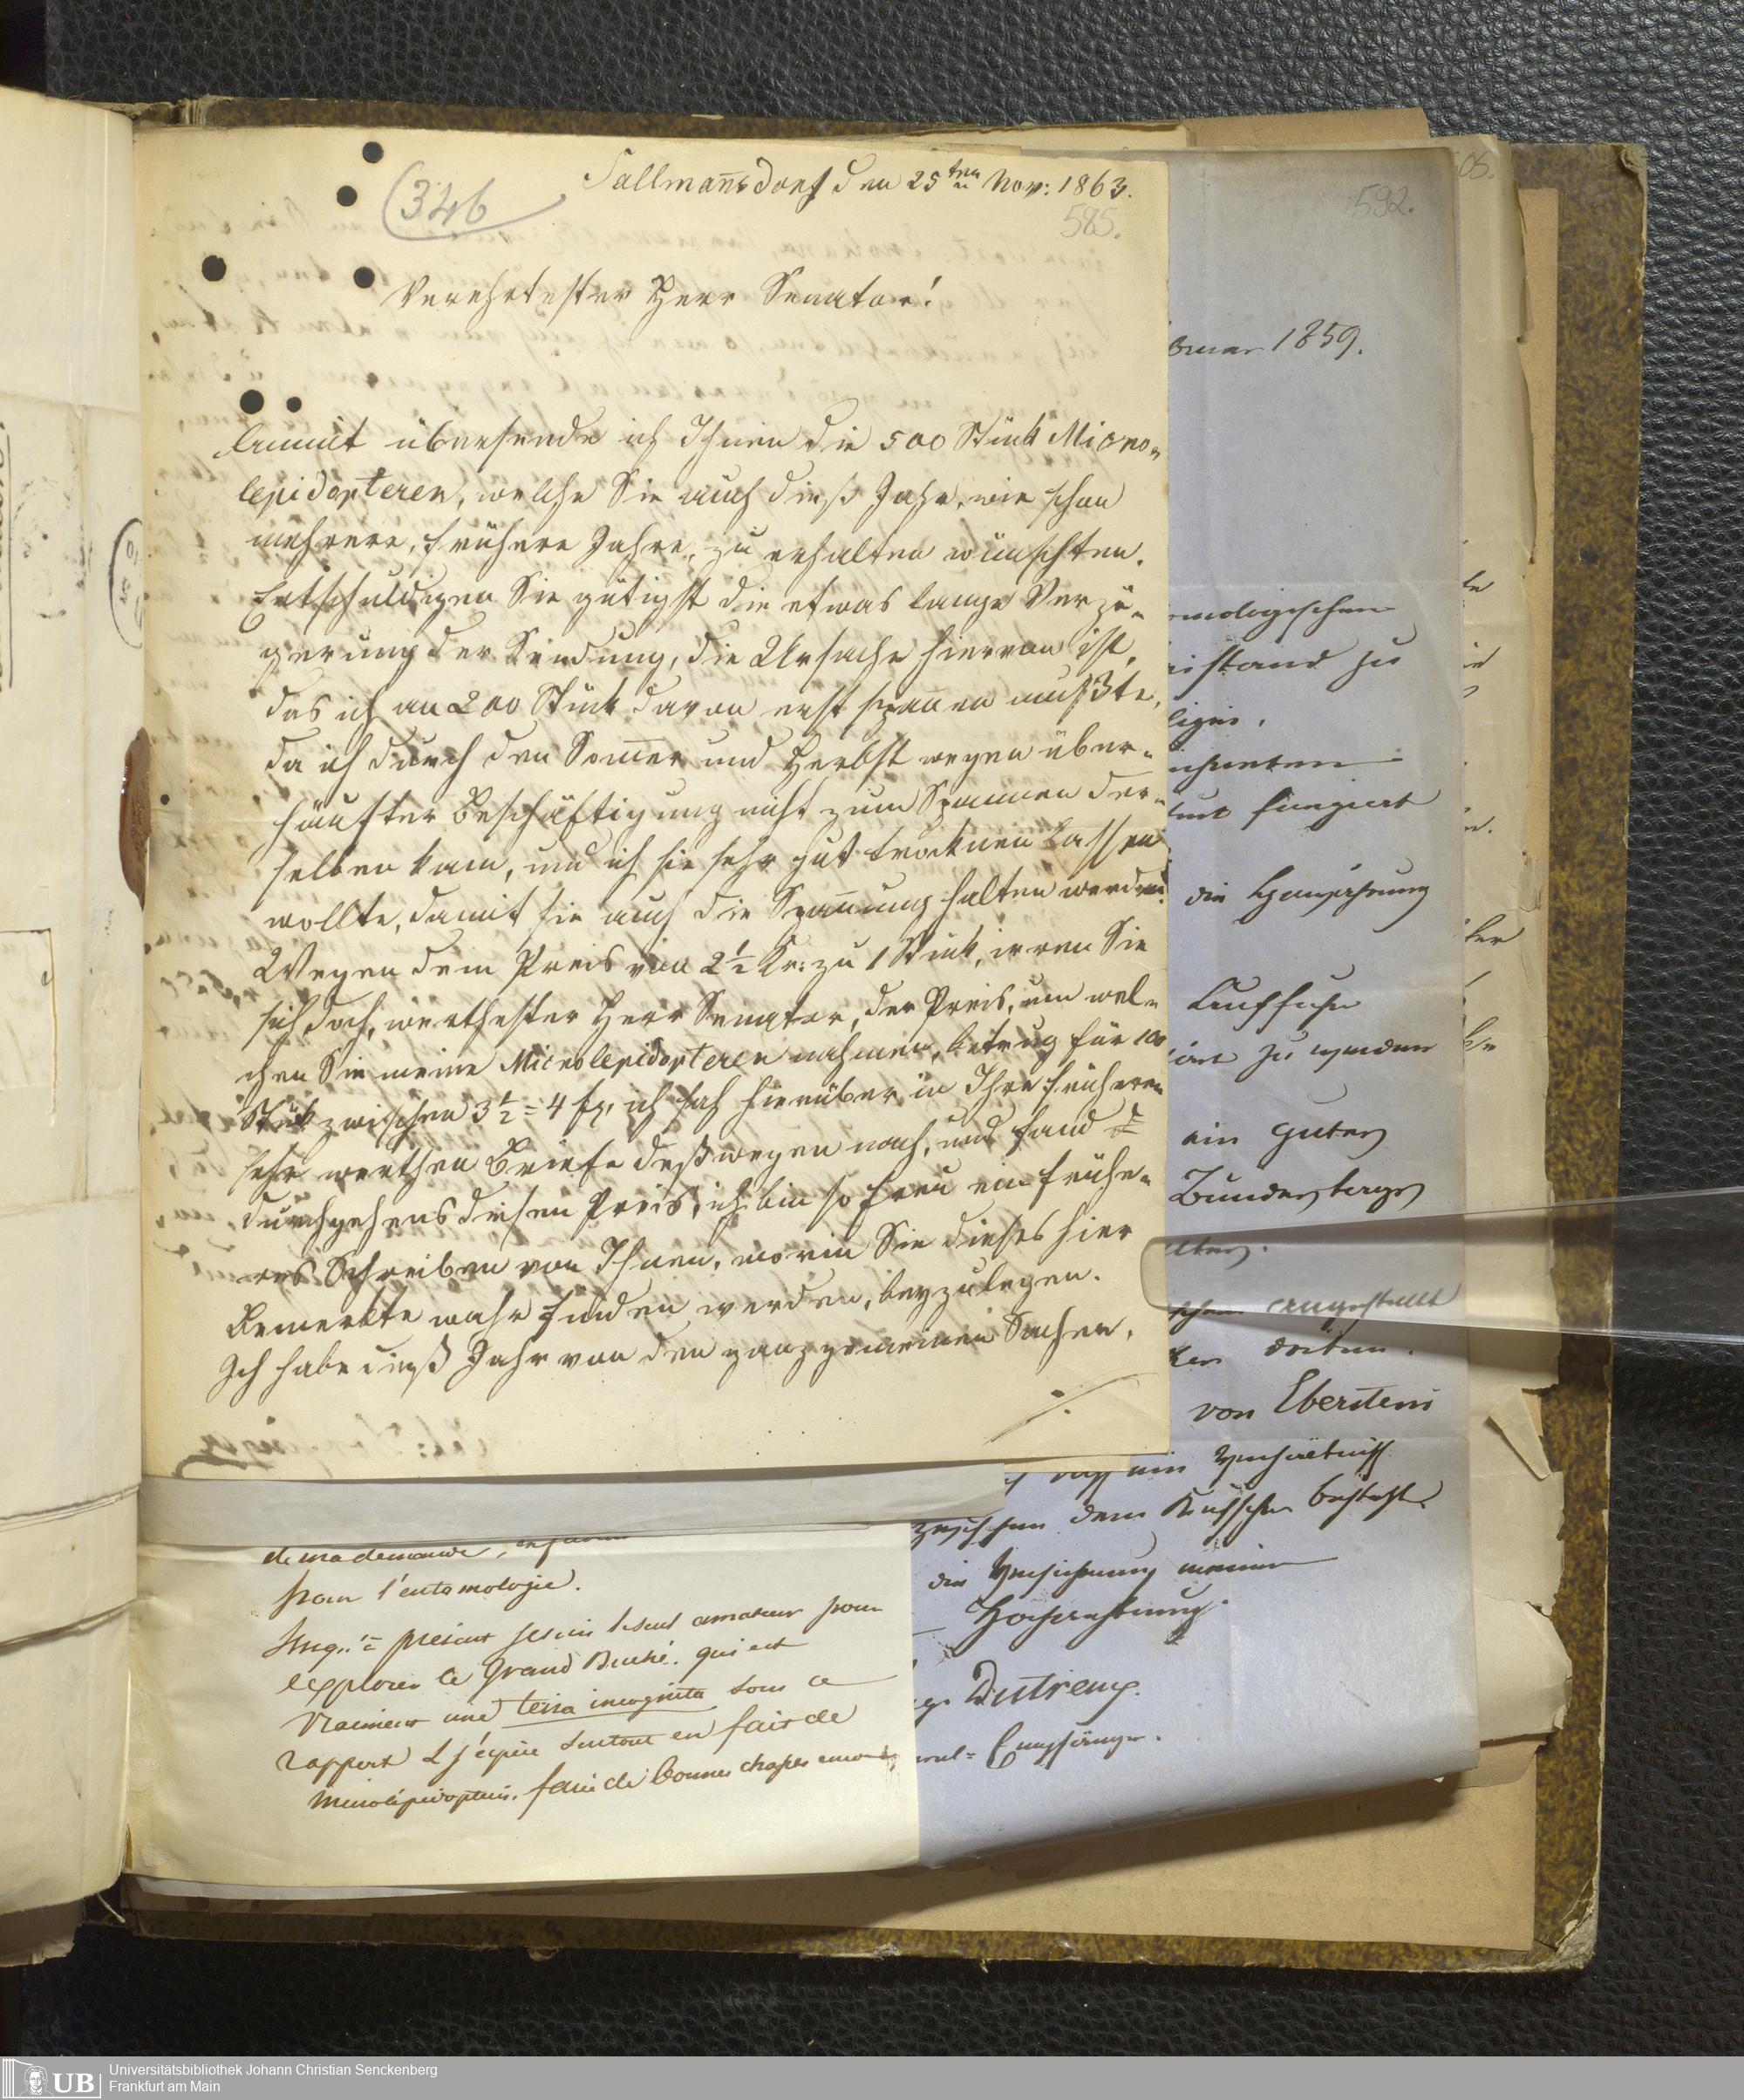 Sallmannsdorf den 25ten Nov: 1863.
(346
585.
Verehrtester Herr Senator!
Anmit übersende ich Ihnen die 500 Stück Micro-
lepidopteren, welche Sie auch dieß Jahr, wie schon
mehrere, frühere Jahre, zu erhalten wünschten.
Entschuldigen Sie gütigst die etwas lange Verzö-
gerung der Sendung, die Ursache hievon ist,
das ich an 200 Stück davon erst spannen mußte,
da ich durch den Sommer und Herbst wegen über-
häufter Beschäftigung nicht zum Spannen der-
selben kam, und ich sie sehr gut trocknen lassen
wollte, damit sie auch die Spannung halten werden.
Wegen dem Preis von 2½ Kr: zu 1 Stück, irren Sie
sich doch, werthester Herr Senator, der Preis, um wel-
chen Sie meine Microlepidopteren nahmen, betrug für 100
Stück zwischen 3½ = 4 fl, ich sah hierüber in Ihre früheren
sehr werthen Briefe deßwegen nach, und fand
durchgehens diesen Preis, ich bin so frei ein frühe-
res Schreiben von Ihnen, worin Sie dieses hier
Bemerkte wahr finden werden, beyzulegen.
Ich habe dieß Jahr von den ganz gemeinen Sachen,
./.
592.
05.
bruar 1859.
omologischen
istand zu
fungiert
die
zu
ein guter
Bundestags
angestellt
dritten.
von Eberstein
ein Verhältniß
zwischen dem besteht.
die Versicherung meiner
Hochachtung.
de ma demande,
pour l'entomologie.
Jusqu'à présent je suis le seul amateur pour
explorer le Grand Duché. qui est
vraiment une terra incognita sous ce
rapport & j'espère surtout en fait de
microlépidoptères, faire de bonnes chasses
Universitätsbibliothek Johann Christian Senckenberg
Frankfurt am Main
UB